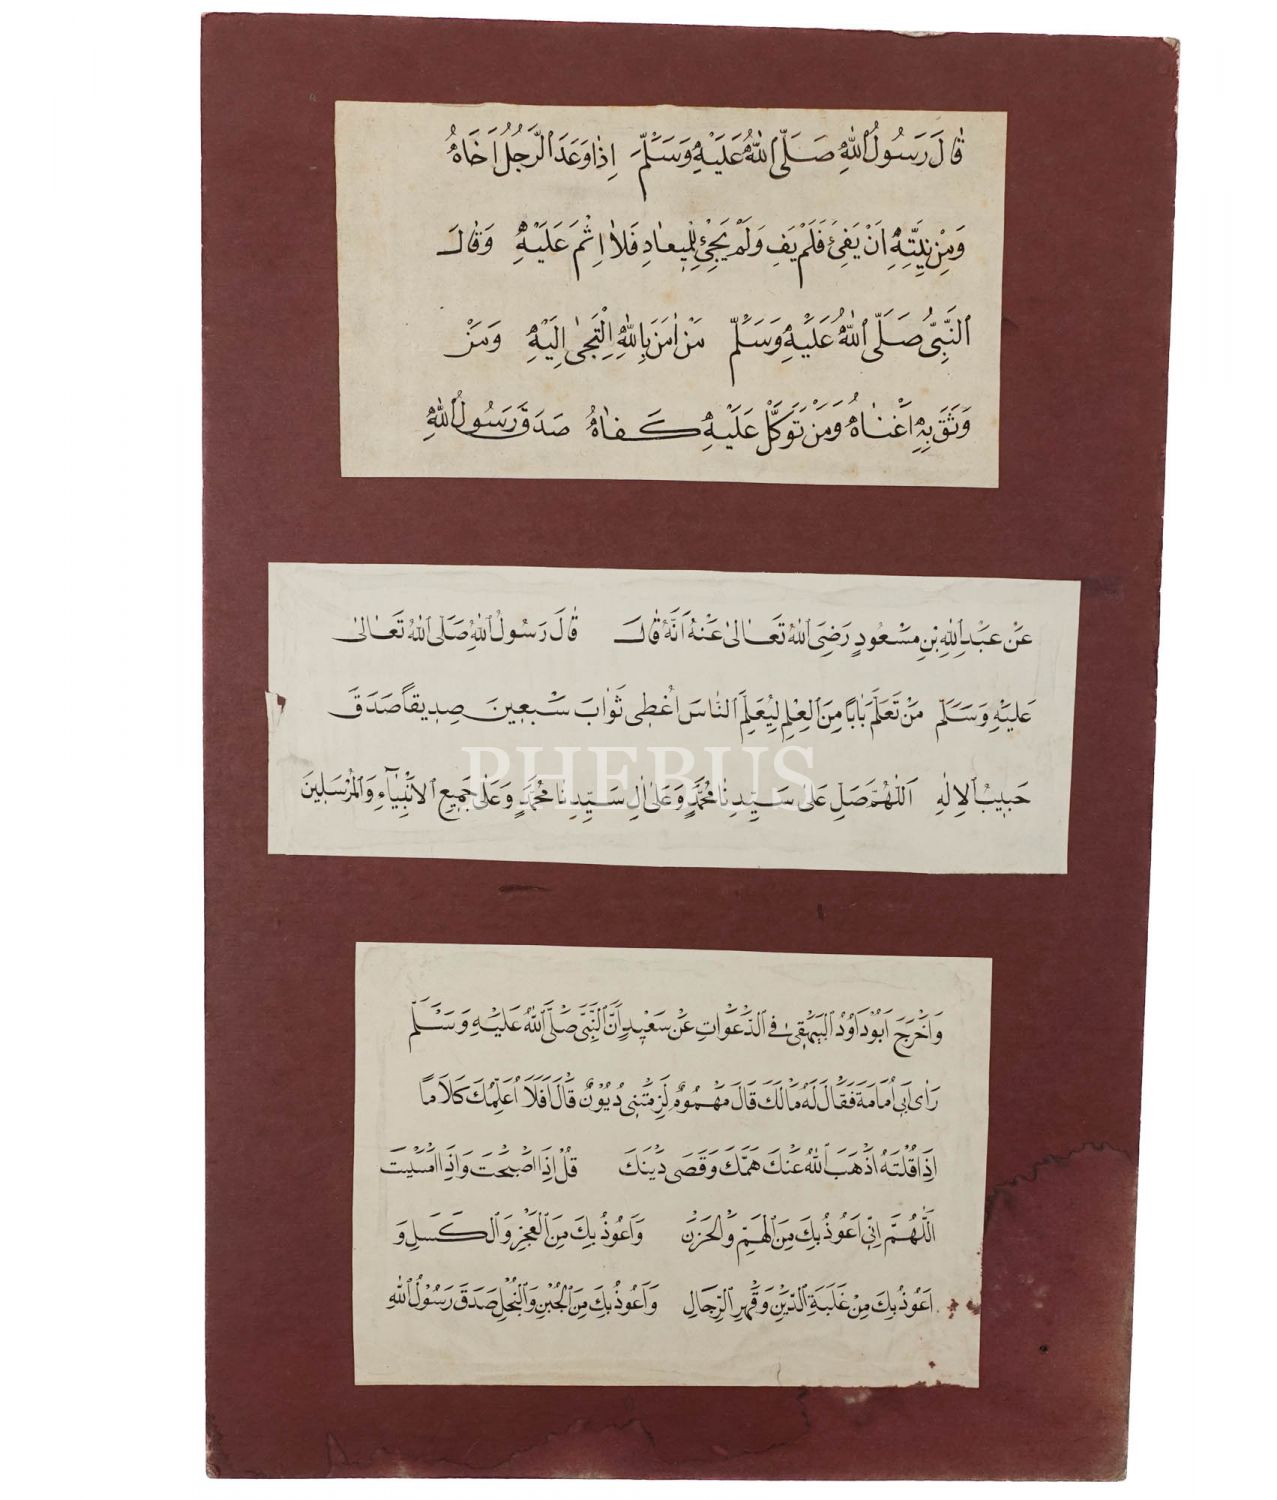 قَالَ رَسُولُ اللّٰهِ صَلَّى اللّٰهُ عَلَيْهِ وَسَلَّمَ اِذَا وَعَدَ الرَّجُلُ اَخَاهُ
وَمِنْ نِيَّتِهِ اَنْ يَفِئَ فَلَمْ يَفِ وَلَمْ يَجِئْ لِلْمِيعَادِ فَلَا اِثْمَ عَلَيْهِ وَقَالَ
النَّبِىُّ صَلَّى اللّٰهُ عَلَيْهِ وَسَلَّمْ مَنْ اٰمَنَ بِاللّٰهِ اِلْتَجٰى اِلَيْهِ وَمَنْ
وَثَقَ بِهِ اَغْنَاهُ وَمَنْ تَوَكَّلَ عَلَيْهِ كَفَاهُ صَدَقَ رَسُولُ اللّٰهِ
عَنْ عَبْدِ اللّٰهِ بْنِ مَسْعُودٍ رَضِىَ اللّٰهُ تَعَالٰى عَنْهُ اَنَّهُ قَالَ قَالَ رَسُولُ اللّٰهِ صَلَّى اللّٰهُ تَعَالٰى
عَلَيْهِ وَسَلَّمَ مَنْ تَعَلَّمَ بَابًا مِنَ الْعِلْمِ لِيُعَلِّمَ النَّاسَ اُعْطِى ثَوَابَ سَبْعِينَ صِدِيقًا صَدَقَ
PHEBUS
حَبِيبُ الْاِلٰهِ اَللّٰهُمَّ صَلِّ عَلٰى سَيِّدِنَا مُحَمَّدٍ وَعَلٰى اٰلِ سَيِّدِنَا مُحَمَّدٍ وَعَلٰى جَمِيعِ الْاَنْبِيَآءِ وَالْمُرْسَلِينَ
وَاَخْرَجَ اَبُو دَاوُدُ الْبَيْهَقِى فِى الدَّعَوَاتِ عَنْ سَعِيدٍ اَنَّ النَّبِىَّ صَلَّى اللّٰهُ عَلَيْهِ وَسَلَّمْ
رَاٰى اَبِى اُمَامَةَ فَقَالَ لَهُ مَالَكَ قَالَ مَهْمُومٌ لَزِمَتْنِى دُيُوْنٌ قَالَ اَفَلَا اُعَلِّمُكَ كَلَامًا
اِذَا قُلْتَهُ اَذْهَبَ اللّٰهُ عَنْكَ هَمَّكَ وَقَضَى دَيْنَكَ قُلْ اِذَا اَصْبَحْتَ وَاِذَا اَمْسَيْتَ
اَللّٰهُمَّ اِنِّى اَعُوذُ بِكَ مِنَ الْهَمِّ وَالْحَزَنَ وَاَعُوذُ بِكَ مِنَ الْعَجْزِ وَالْكَسَلِ وَ
اَعُوذُ بِكَ مِنْ غَلَبَةِ الدَّيْنِ وَقَهْرِ الرِّجَالِ وَاَعُوذُ بِكَ مِنَ الْجُبْنِ وَالْبُخْلِ صَدَقَ رَسُوْلُ اللّٰهِ